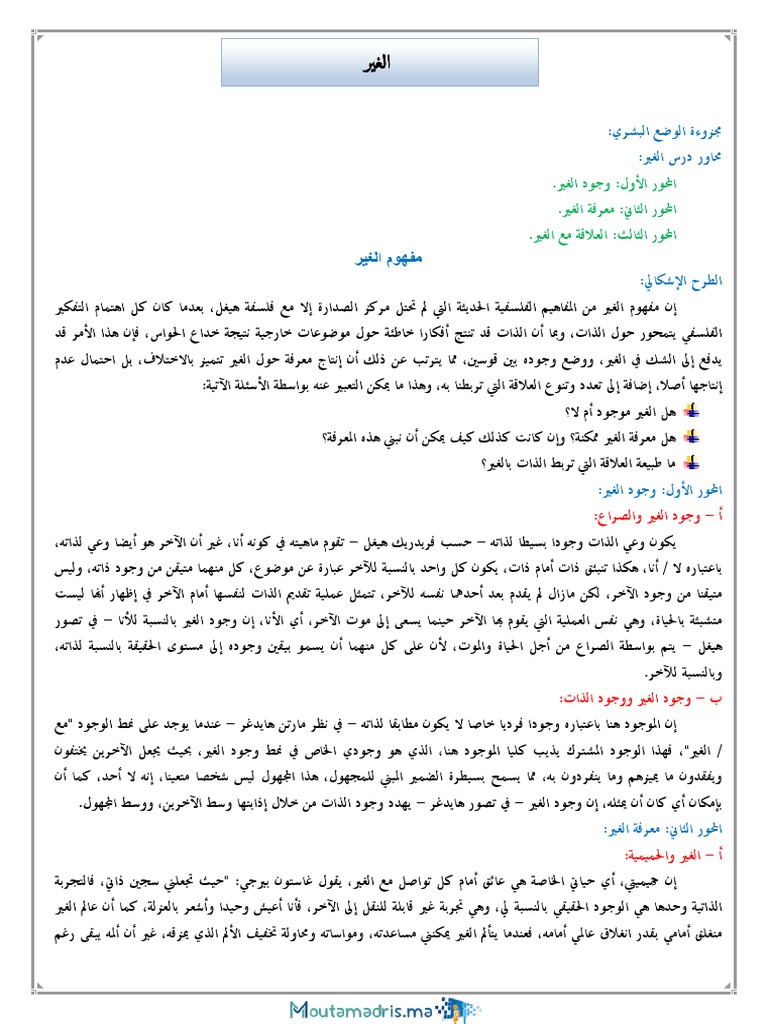 الغير
مجزوءة الوضع البشري:
محاور درس الغير:
المحور الأول: وجود الغير.
المحور الثاني: معرفة الغير.
المحور الثالث: العلاقة مع الغير.
مفهوم الغير
الطرح الإشكالي:
إن مفهوم الغير من المفاهيم الفلسفية الحديثة التي لم تحتل مركز الصدارة إلا مع فلسفة هيغل، بعدما كان كل اهتمام التفكير
الفلسفي يتمحور حول الذات، وبما أن الذات قد تنتج أفكارا خاطئة حول موضوعات خارجية نتيجة خداع الحواس، فإن هذا الأمر قد
يدفع إلى الشك في الغير، ووضع وجوده بين قوسين، مما يترتب عن ذلك أن إنتاج معرفة حول الغير تتميز بالاختلاف، بل احتمال عدم
إنتاجها أصلا، إضافة إلى تعدد وتنوع العلاقة التي تربطنا به، وهذا ما يمكن التعبير عنه بواسطة الأسئلة الآتية:
هل الغير موجود أم لا؟
هل معرفة الغير ممكنة؟ وإن كانت كذلك كيف يمكن أن نبني هذه المعرفة؟
ما طبيعة العلاقة التي تربط الذات بالغير؟
المحور الأول: وجود الغير:
أ – وجود الغير والصراع:
يكون وعي الذات وجودا بسيطا لذاته – حسب فريدريك هيغل – تقوم ماهيته في كونه أنا، غير أن الآخر هو أيضا وعي لذاته،
باعتباره لا / أنا، هكذا تنبثق ذات أمام ذات، يكون كل واحد بالنسبة للآخر عبارة عن موضوع، كل منهما متيقن من وجود ذاته، وليس
متيقنا من وجود الآخر، لكن مازال لم يقدم بعد أحدهما نفسه للآخر، تتمثل عملية تقديم الذات لنفسها أمام الآخر في إظهار أنها ليست
متشبثة بالحياة، وهي نفس العملية التي يقوم بها الآخر حينما يسعى إلى موت الآخر، أي الأنا، إن وجود الغير بالنسبة للأنا – في تصور
هيغل – يتم بواسطة الصراع من أجل الحياة والموت، لأن على كل منهما أن يسمو بيقين وجوده إلى مستوى الحقيقة بالنسبة لذاته،
وبالنسبة للآخر.
ب – وجود الغير ووجود الذات:
إن الموجود هنا باعتباره وجودا فرديا خاصا لا يكون مطابقا لذاته – في نظر مارتن هايدغر – عندما يوجد على نمط الوجود "مع
/ الغير"، فهذا الوجود المشترك يذيب كليا الموجود هنا، الذي هو وجودي الخاص في نمط وجود الغير، بحيث يجعل الآخرين يختفون
ويفقدون ما يميزهم وما ينفردون به، مما يسمح بسيطرة الضمير المبني للمجهول، هذا المجهول ليس شخصا متعينا، إنه لا أحد، كما أن
بإمكان أي كان أن يمثله، إن وجود الغير – في تصور هايدغر – يهدد وجود الذات من خلال إذابتها وسط الآخرين، ووسط المجهول.
المحور الثاني: معرفة الغير:
أ – الغير والحميمية:
إن حميميتي، أي حياتي الخاصة هي عائق أمام كل تواصل مع الغير، يقول غاستون بيرجي: "حيث تجعلني سجين ذاتي، فالتجربة
الذاتية وحدها هي الوجود الحقيقي بالنسبة لي، وهي تجربة غير قابلة للنقل إلى الآخر، فأنا أعيش وحيدا وأشعر بالعزلة، كما أن عالم الغير
منغلق أمامي بقدر انغلاق عالمي أمامه، فعندما يتألم الغير يمكنني مساعدته، ومواساته ومحاولة تخفيف الألم الذي يمزقه، غير أن ألمه يبقى رغم
Moutamadris.ma